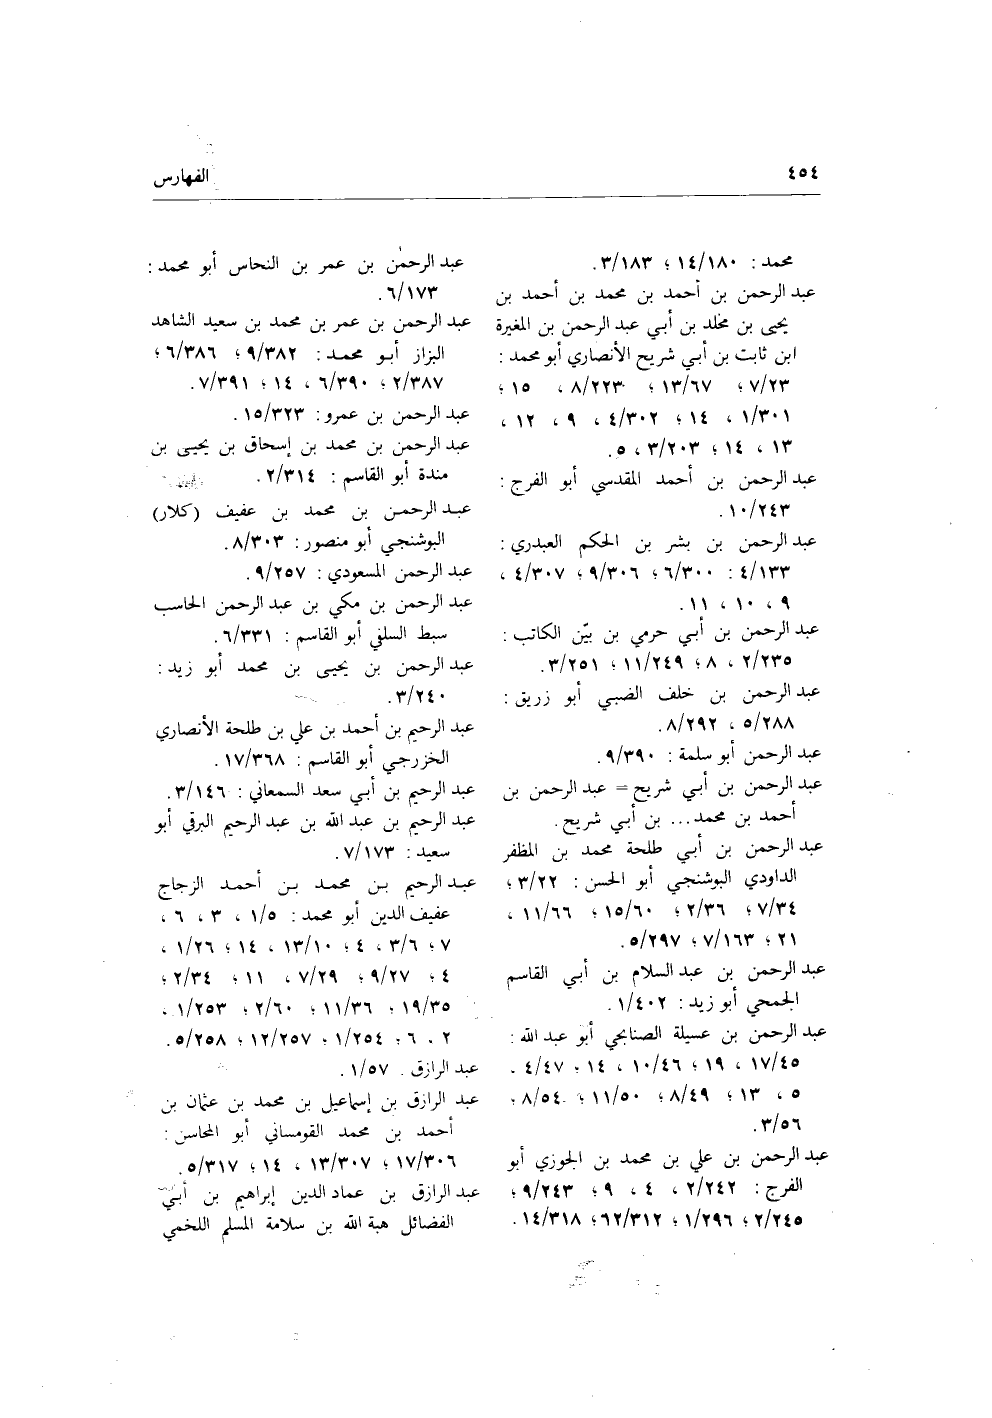 ٤٥٤
الفهارس
محمد : ١٤/١٨٠ ؛ ٣/١٨٣.
عبد الرحمن بن أحمد بن محمد بن أحمد بن
يحيى بن مخلد بن أبي عبد الرحمن بن المغيرة
ابن ثابت بن أبي شريح الأنصاري أبو محمد :
٧/٢٣ ؛ ١٣/٦٧ ؛ ٨/٢٢٣ ، ١٥ ؛
١/٣٠١ ، ١٤ ؛ ٤/٣٠٢ ، ٩ ، ١٢ ،
١٣ ، ١٤ ؛ ٣/٢٠٣ ، ٥.
عبد الرحمن بن أحمد المقدسي أبو الفرج :
١٠/٢٤٣.
عبد الرحمن بن بشر بن الحكم العبدري :
٤/١٣٣ : ٦/٣٠٠ ؛ ٩/٣٠٦ ؛ ٤/٣٠٧ ،
٩ ، ١٠ ، ١١.
عبد الرحمن بن أبي حرمي بن بيّن الكاتب :
٢/٢٣٥ ، ٨ ؛ ١١/٢٤٩ ؛ ٣/٢٥١.
عبد الرحمن بن خلف الضبي أبو زريق :
٥/٢٨٨ ، ٨/٢٩٢.
عبد الرحمن أبو سلمة : ٩/٣٩٠.
عبد الرحمن بن أبي شريح = عبد الرحمن بن
أحمد بن محمد... بن أبي شريح.
عبد الرحمن بن أبي طلحة محمد بن المظفر
الداودي البوشنجي أبو الحسن : ٣/٢٢ ؛
٧/٣٤ ؛ ٢/٣٦ ؛ ١٥/٦٠ ؛ ١١/٦٦ ،
٢١ ؛ ٧/١٦٣ ؛ ٥/٢٩٧.
عبد الرحمن بن عبد السلام بن أبي القاسم
الجمحي أبو زيد : ١/٤٠٢.
عبد الرحمن بن عسيلة الصنابحي أبو عبد الله :
١٧/٤٥ ، ١٩ ؛ ١٠/٤٦ ، ١٤ ؛ ٤/٤٧ .
٥ ، ١٣ ؛ ٨/٤٩ ؛ ١١/٥٠ ؛ ٨/٥٤ ؛
٣/٥٦.
عبد الرحمن بن علي بن محمد بن الجوزي أبو
الفرج : ٢/٢٤٢ ، ٤ ، ٩ ؛ ٩/٢٤٣ ؛
٢/٢٤٥ ؛ ١/٢٩٦ ؛ ٦٢/٣١٢ ؛ ١٤/٣١٨.
عبد الرحمن بن عمر بن النحاس أبو محمد :
٦/١٧٣.
عبد الرحمن بن عمر بن محمد بن سعيد الشاهد
البزاز أبو محمد : ٩/٣٨٢ ؛ ٦/٣٨٦ ؛
٢/٣٨٧ ؛ ٦/٣٩٠ ، ١٤ ؛ ٧/٣٩١.
عبد الرحمن بن عمرو : ١٥/٣٢٣.
عبد الرحمن بن محمد بن إسحاق بن يحيى بن
مندة أبو القاسم : ٢/٣١٤.
عبد الرحمن بن محمد بن عفيف (كلار)
البوشنجي أبو منصور : ٨/٣٠٣.
عبد الرحمن المسعودي : ٩/٢٥٧.
عبد الرحمن بن مكي بن عبد الرحمن الحاسب
سبط السلفي أبو القاسم : ٦/٣٣١.
عبد الرحمن بن يحيى بن محمد أبو زيد :
٣/٢٤٠.
عبد الرحيم بن أحمد بن علي بن طلحة الأنصاري
الخزرجي أبو القاسم : ١٧/٣٦٨.
عبد الرحيم بن أبي سعد السمعاني : ٣/١٤٦.
عبد الرحيم بن عبد الله بن عبد الرحيم البرقي أبو
سعيد : ٧/١٧٣.
عبد الرحيم بن محمد بن أحمد الزجاج
عفيف الدين أبو محمد : ١/٥ ، ٣ ، ٦ ،
٧ ؛ ٣/٦ ، ٤ ؛ ١٣/١٠ ، ١٤ ؛ ١/٢٦ ،
٤ ؛ ٩/٢٧ ؛ ٧/٢٩ ، ١١ ؛ ٢/٣٤ ؛
١٩/٣٥ ؛ ١١/٣٦ ؛ ٢/٦٠ ؛ ١/٢٥٣ ،
٢ ، ٦ ؛ ١/٢٥٤ ؛ ١٢/٢٥٧ ؛ ٥/٢٥٨.
عبد الرازق . ١/٥٧.
عبد الرازق بن إسماعيل بن محمد بن عثمان بن
أحمد بن محمد القومساني أبو المحاسن :
١٧/٣٠٦ ؛ ١٣/٣٠٧ ، ١٤ ؛ ٥/٣١٧.
عبد الرازق بن عماد الدين إبراهيم بن أبي
الفضائل هبة الله بن سلامة المسلم اللخمي